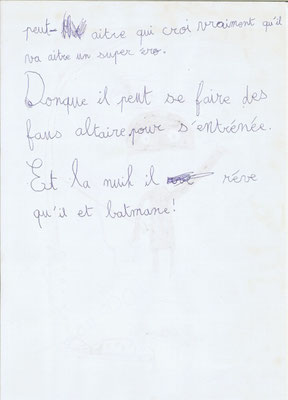 peut- aitre qui croi vraimont qu'il
va aitre un super ero.
Donque il peut se faire des
faus altaire pour s'entrénée.
Est la nuit il réve
qu'il et batmane!